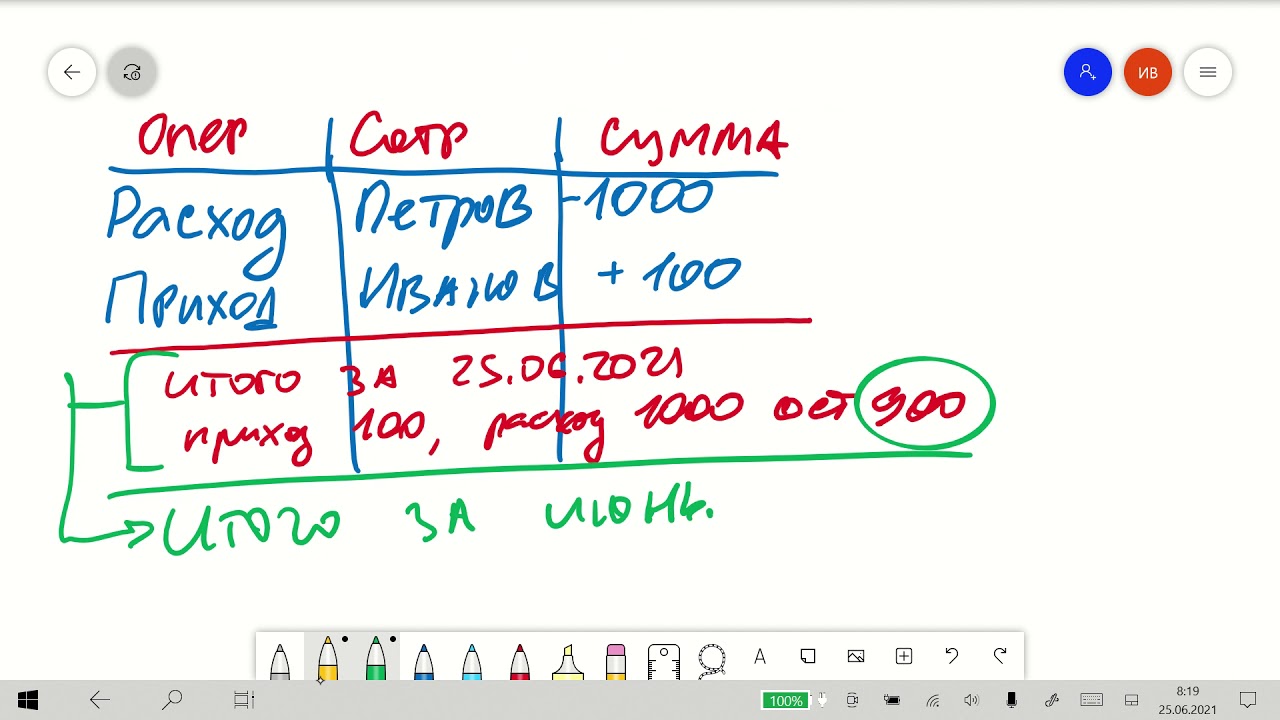 ИВ
Опер Сотр Сумма
Расход Петров -1000
Приход Иванов + 100
итого за 25.06.2021
приход 100, расход 1000 ост 900
итого за июнь.
A
100%
8:19
25.06.2021